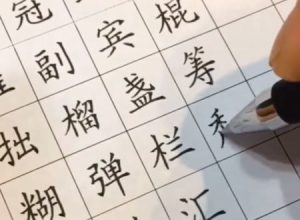 冠
副宾棍
拙榴盏筹
糊弹栏
汇